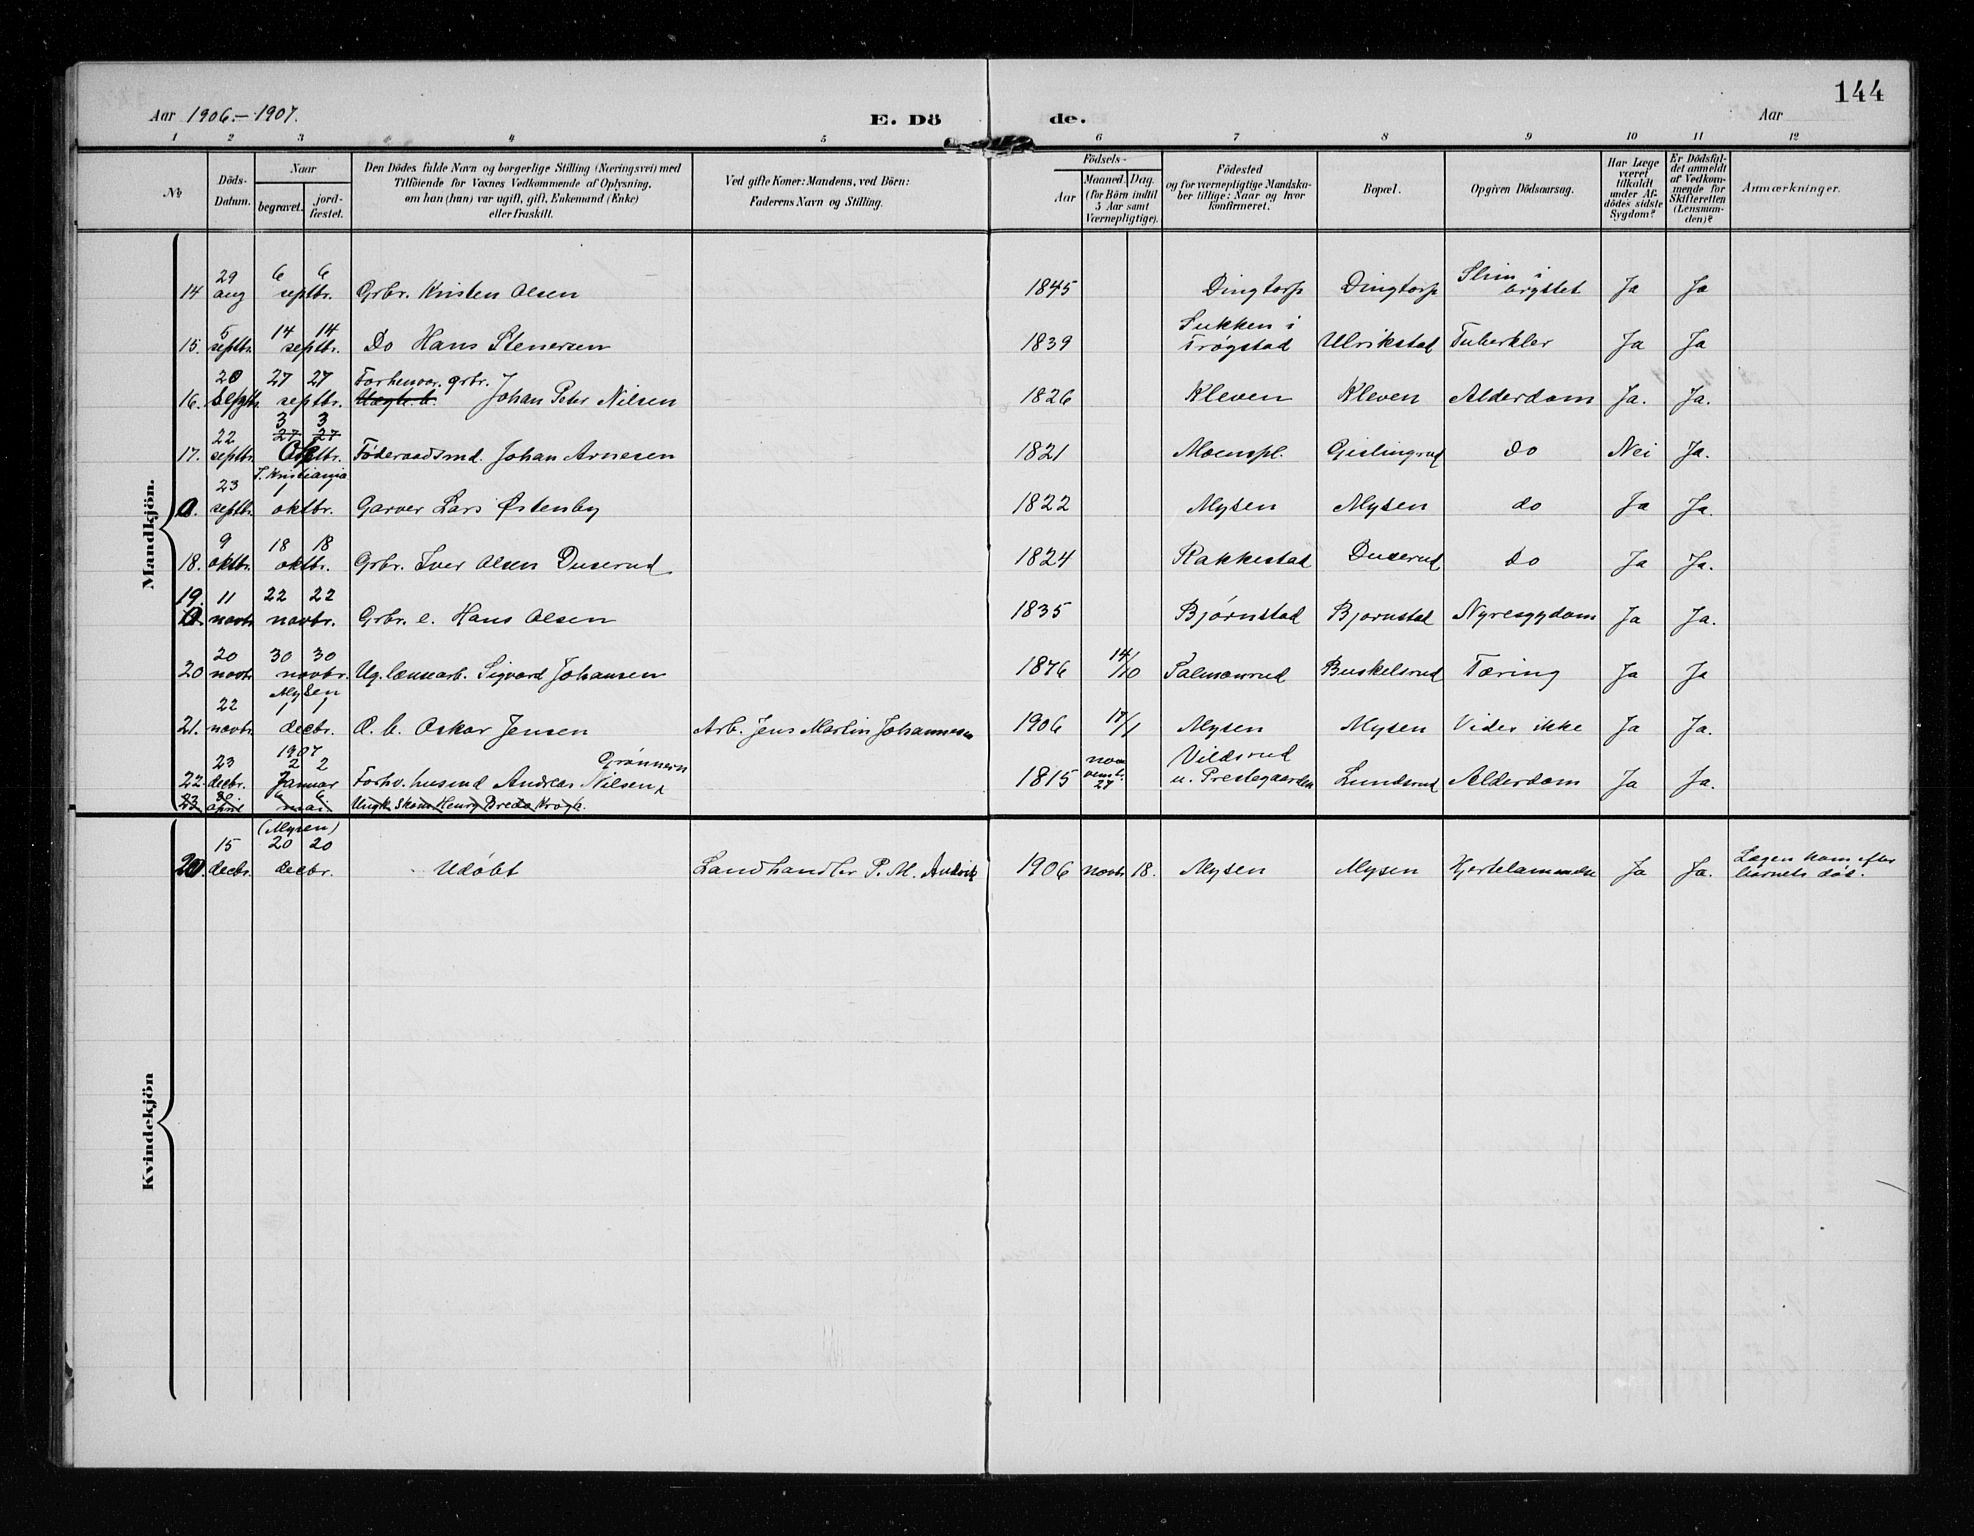 144
Aar 1906.-1907. E. Dö de. Aar
1 2 3 4 5 6 7 8 9 10 11 12
№ Döds-Datum. Naar begravet. jord-fæstet. Den Dödes fulde Navn og borgerlige Stilling (Næringsvei) med Tilföiende for Voxnes Vedkommende af Oplysning, om han (hun) var ugift, gift, Enkemand (Enke) eller fraskilt. Ved gifte Koner: Mandens, ved Börn: Faderens Navn og Stilling. Födsels- Aar Maaned. Dag. (for Börn indtil 5 Aar samt Værnepligtige). Födested og for værnepligtige Mandskaber tillige: Naar og hvor konfirmeret. Bopæl. Opgiven Dödsaarsag. Har Læge været tilkaldt under Afdödes sidste Sygdom? Er Dödsfaldet anmeldt af Vedkommende for Skifteretten (Lensmanden)? Anmærkninger.
Mandkjön.
14 29 aug 6 6 septbr. Grbr. Kristen Olsen 1845 Dingtorp Dingtorp Slim i brystet Ja Ja
15. 5 septbr. 14 14 septbr. Do Hans Stenersen 1839 Sukken i Trøgstad Ulrikstad Tuberkler Ja Ja
16. 20 septbr. 27 27 septbr. Forhenvar. grbr. Johan Peter Nilsen 1826 Kleven Kleven Alderdom Ja. Ja.
17. 22 septbr. 3 3 27 27 Oktbr. Føderaadsmd. Johan Arnesen 1821 Moenspl. Gislingrud Do Nei Ja.
0. 23 septbr. T. Kristiania 1 1 oktbr. Garver Lars Østenby 1822 Mysen Mysen do Ja Ja.
18. 9 oktbr. 18 18 oktbr. Grbr. Iver Olsen Duserud 1824 Rakkestad Duserud Do Ja Ja.
19. 11 novbr. 22 22 novbr. Grbr. e. Hans Olsen 1835 Bjørnstad Bjørnstad Nyresygdom Ja Ja.
20 20 novbr. 30 30 novbr. Ug. lænsearb. Sigvard Johansen 1876 14/10 Salmonrud Buskelsrud Tæring Ja Ja
21. 22 novbr. Mysen 1 1 decbr. O. b. Oskar Jensen Arb. Jens Martin Johannesen 1906 17/1 Mysen Mysen Vides ikke Ja Ja.
22. 23 decbr. 1907 2 2 Januar Forhv. husmd Andreas Nilsen Grønnern 1815 november 27 Vildsrud u. Prestegaarden Lundsrud Alderdom Ja Ja.
23. 30 april 6 6 mai Ungk. Skom. Henry Breda Krogh.
Kvindekjön
20. 15 decbr. (Mysen) 20 20 decbr. Udøbt Landhandler P. M. Andvik 1906 novbr 18. Mysen Mysen Hjertelammelse Ja Ja. Lægen kom efter barnets død.